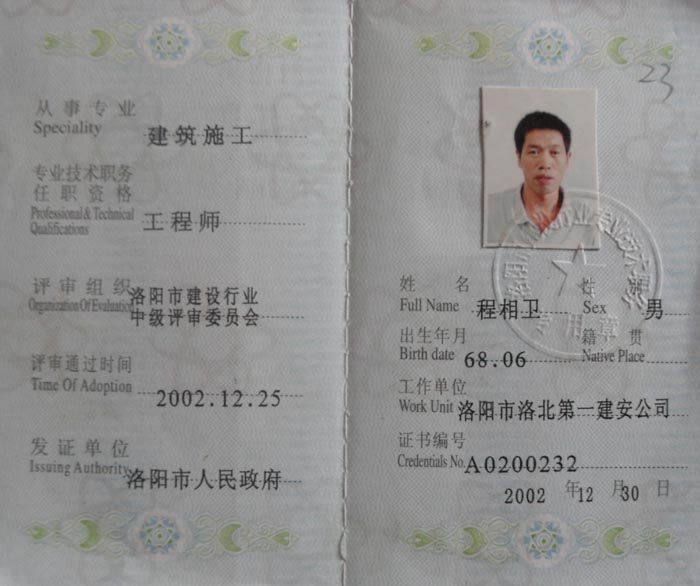 从事专业
Speciality 建筑施工
专业技术职务
任职资格
Professional & Technical
Qualifications 工程师
评审组织 洛阳市建设行业
Organization Of Evaluation 中级评审委员会
评审通过时间
Time Of Adoption 2002.12.25
发证单位
Issuing Authority 洛阳市人民政府
23
姓名 程相卫 性别 男
Full Name Sex
出生年月 68.06 籍贯
Birth date Native Place
工作单位
Work Unit 洛阳市洛北第一建安公司
证书编号
Credentials No. A0200232
2002 年 12 月 30 日
专用章